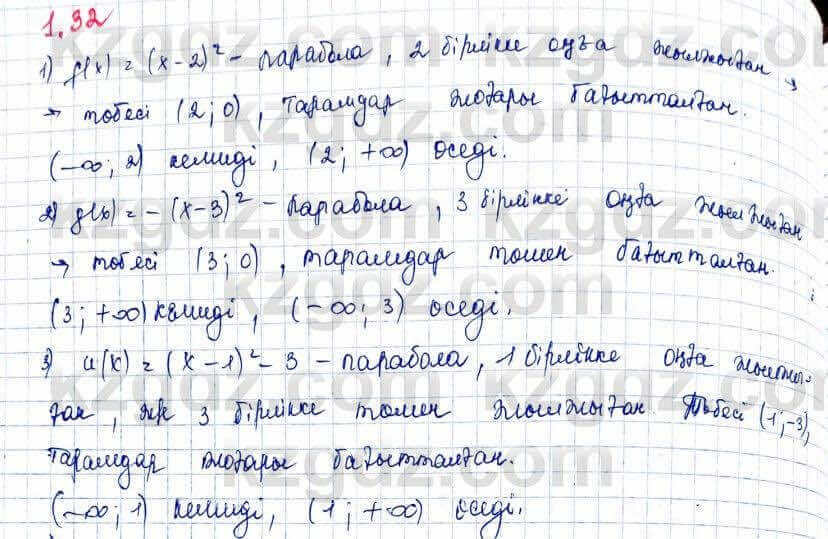 1.32
1) f(x) = (x-2)² - парабола, 2 бірлікке оңға жылжыған
→ төбесі (2; 0), тармақдар жоғары бағытталған.
(-∞; 2) кемиді, (2; +∞) өседі.
2) g(x) = -(x-3)² - парабола, 3 бірлікке оңға жылжыған
→ төбесі (3; 0), тармақдар төмен бағытталған.
(3; +∞) кемиді, (-∞; 3) өседі.
3) u(x) = (x-1)² - 3 - парабола, 1 бірлікке оңға жылжы-
ған, және 3 бірлікке төмен жылжыған. Төбесі (1; -3),
тармақдар жоғары бағытталған.
(-∞; 1) кемиді, (1; +∞) өседі.
kzgdz.com